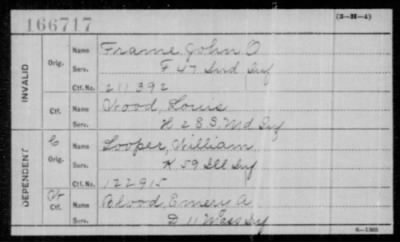 166717
(3-M-4)
INVALID
Orig.
Name Frame John O
Serv. F 47 Ind Inf
Ctf. No. 211392
Ctf.
Name Wood, Louis
Serv. H 2 Md Inf
DEPENDENT
C
Orig.
Name Looper, William
Serv. K 59 Ill Inf
Ctf. No. 122915
Ctf.
Name Blood, Emery A
Serv. D 11 Mass Inf